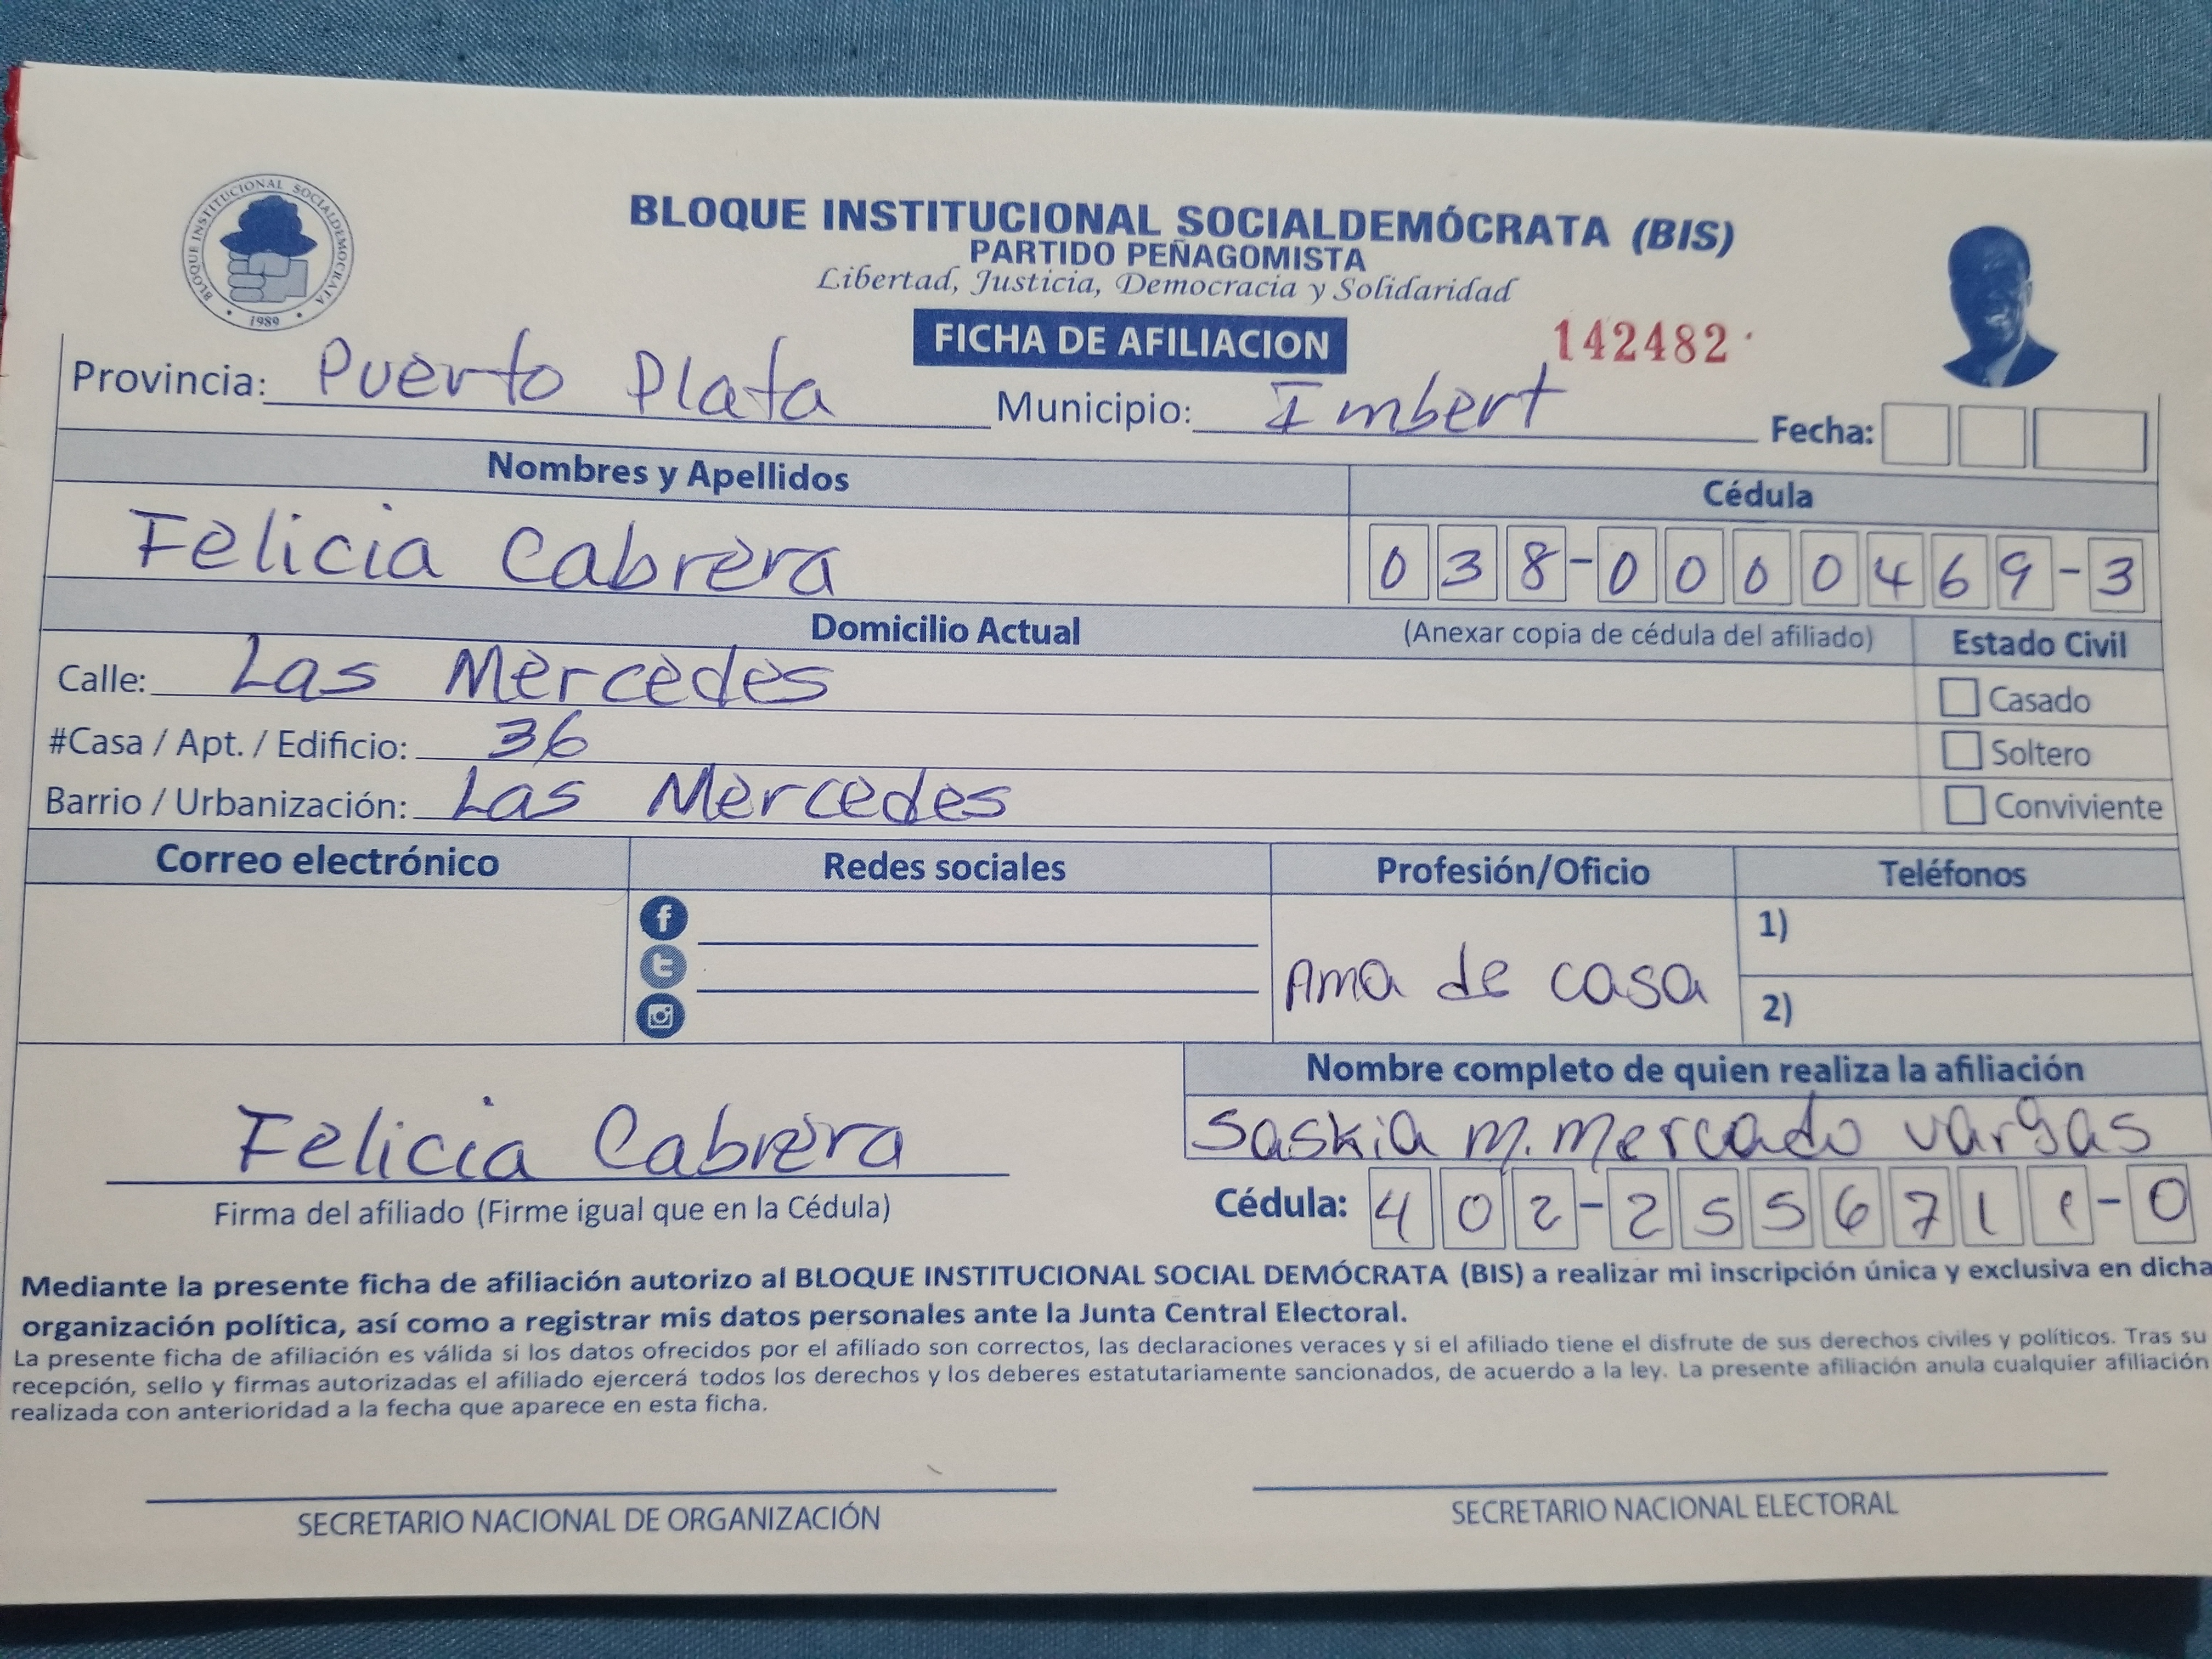 BLOQUE INSTITUCIONAL SOCIALDEMOCRATA
1989
BLOQUE INSTITUCIONAL SOCIALDEMÓCRATA (BIS)
PARTIDO PEÑAGOMISTA
Libertad, Justicia, Democracia y Solidaridad
FICHA DE AFILIACION
142482
Provincia: Puerto Plata Municipio: Imbert Fecha:
Nombres y Apellidos Cédula
Felicia Cabrera 038-0000469-3
Domicilio Actual (Anexar copia de cédula del afiliado) Estado Civil
Calle: Las Mercedes Casado
#Casa / Apt. / Edificio: 36 Soltero
Barrio / Urbanización: Las Mercedes Conviviente
Correo electrónico Redes sociales Profesión/Oficio Teléfonos
1)
Ama de casa
2)
Nombre completo de quien realiza la afiliación
Felicia Cabrera Saskia M. Mercado Vargas
Firma del afiliado (Firme igual que en la Cédula) Cédula: 402-2556711-0
Mediante la presente ficha de afiliación autorizo al BLOQUE INSTITUCIONAL SOCIAL DEMÓCRATA (BIS) a realizar mi inscripción única y exclusiva en dicha
organización política, así como a registrar mis datos personales ante la Junta Central Electoral.
La presente ficha de afiliación es válida si los datos ofrecidos por el afiliado son correctos, las declaraciones veraces y si el afiliado tiene el disfrute de sus derechos civiles y políticos. Tras su
recepción, sello y firmas autorizadas el afiliado ejercerá todos los derechos y los deberes estatutariamente sancionados, de acuerdo a la ley. La presente afiliación anula cualquier afiliación
realizada con anterioridad a la fecha que aparece en esta ficha.
SECRETARIO NACIONAL DE ORGANIZACIÓN SECRETARIO NACIONAL ELECTORAL